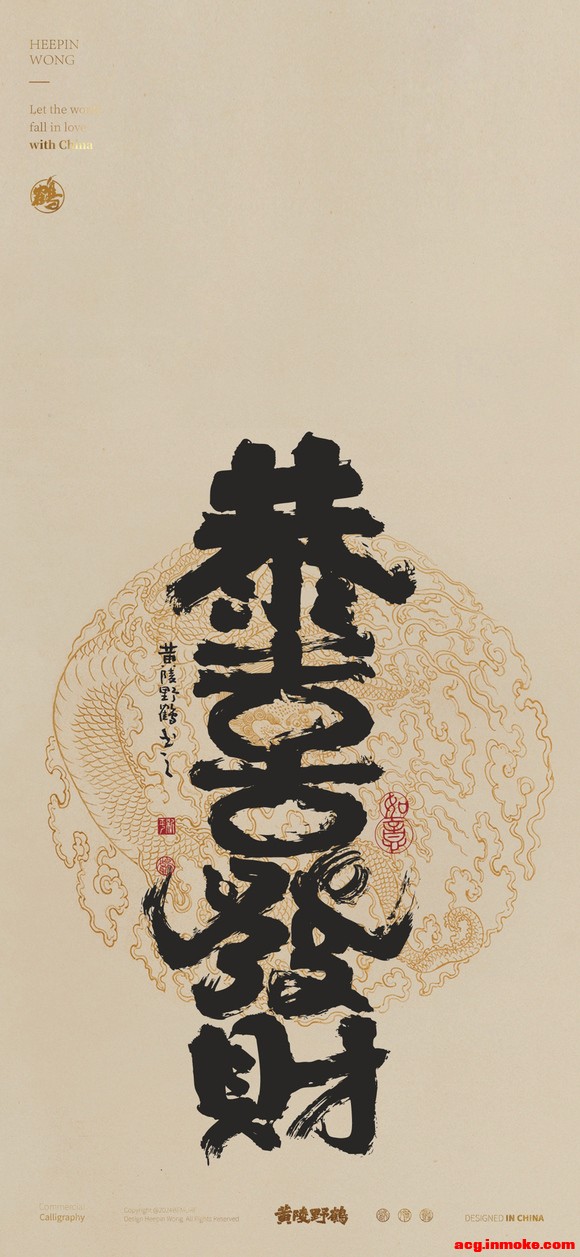 HEEPIN
WONG
Let the wo
fall in love
with China
鹤
恭
喜
發
財
黄陵野鶴书之
如意
Commercial
Calligraphy
Design Heepin Wong. All Rights Reserved
黄陵野鶴
DESIGNED IN CHINA
acg.inmoke.com